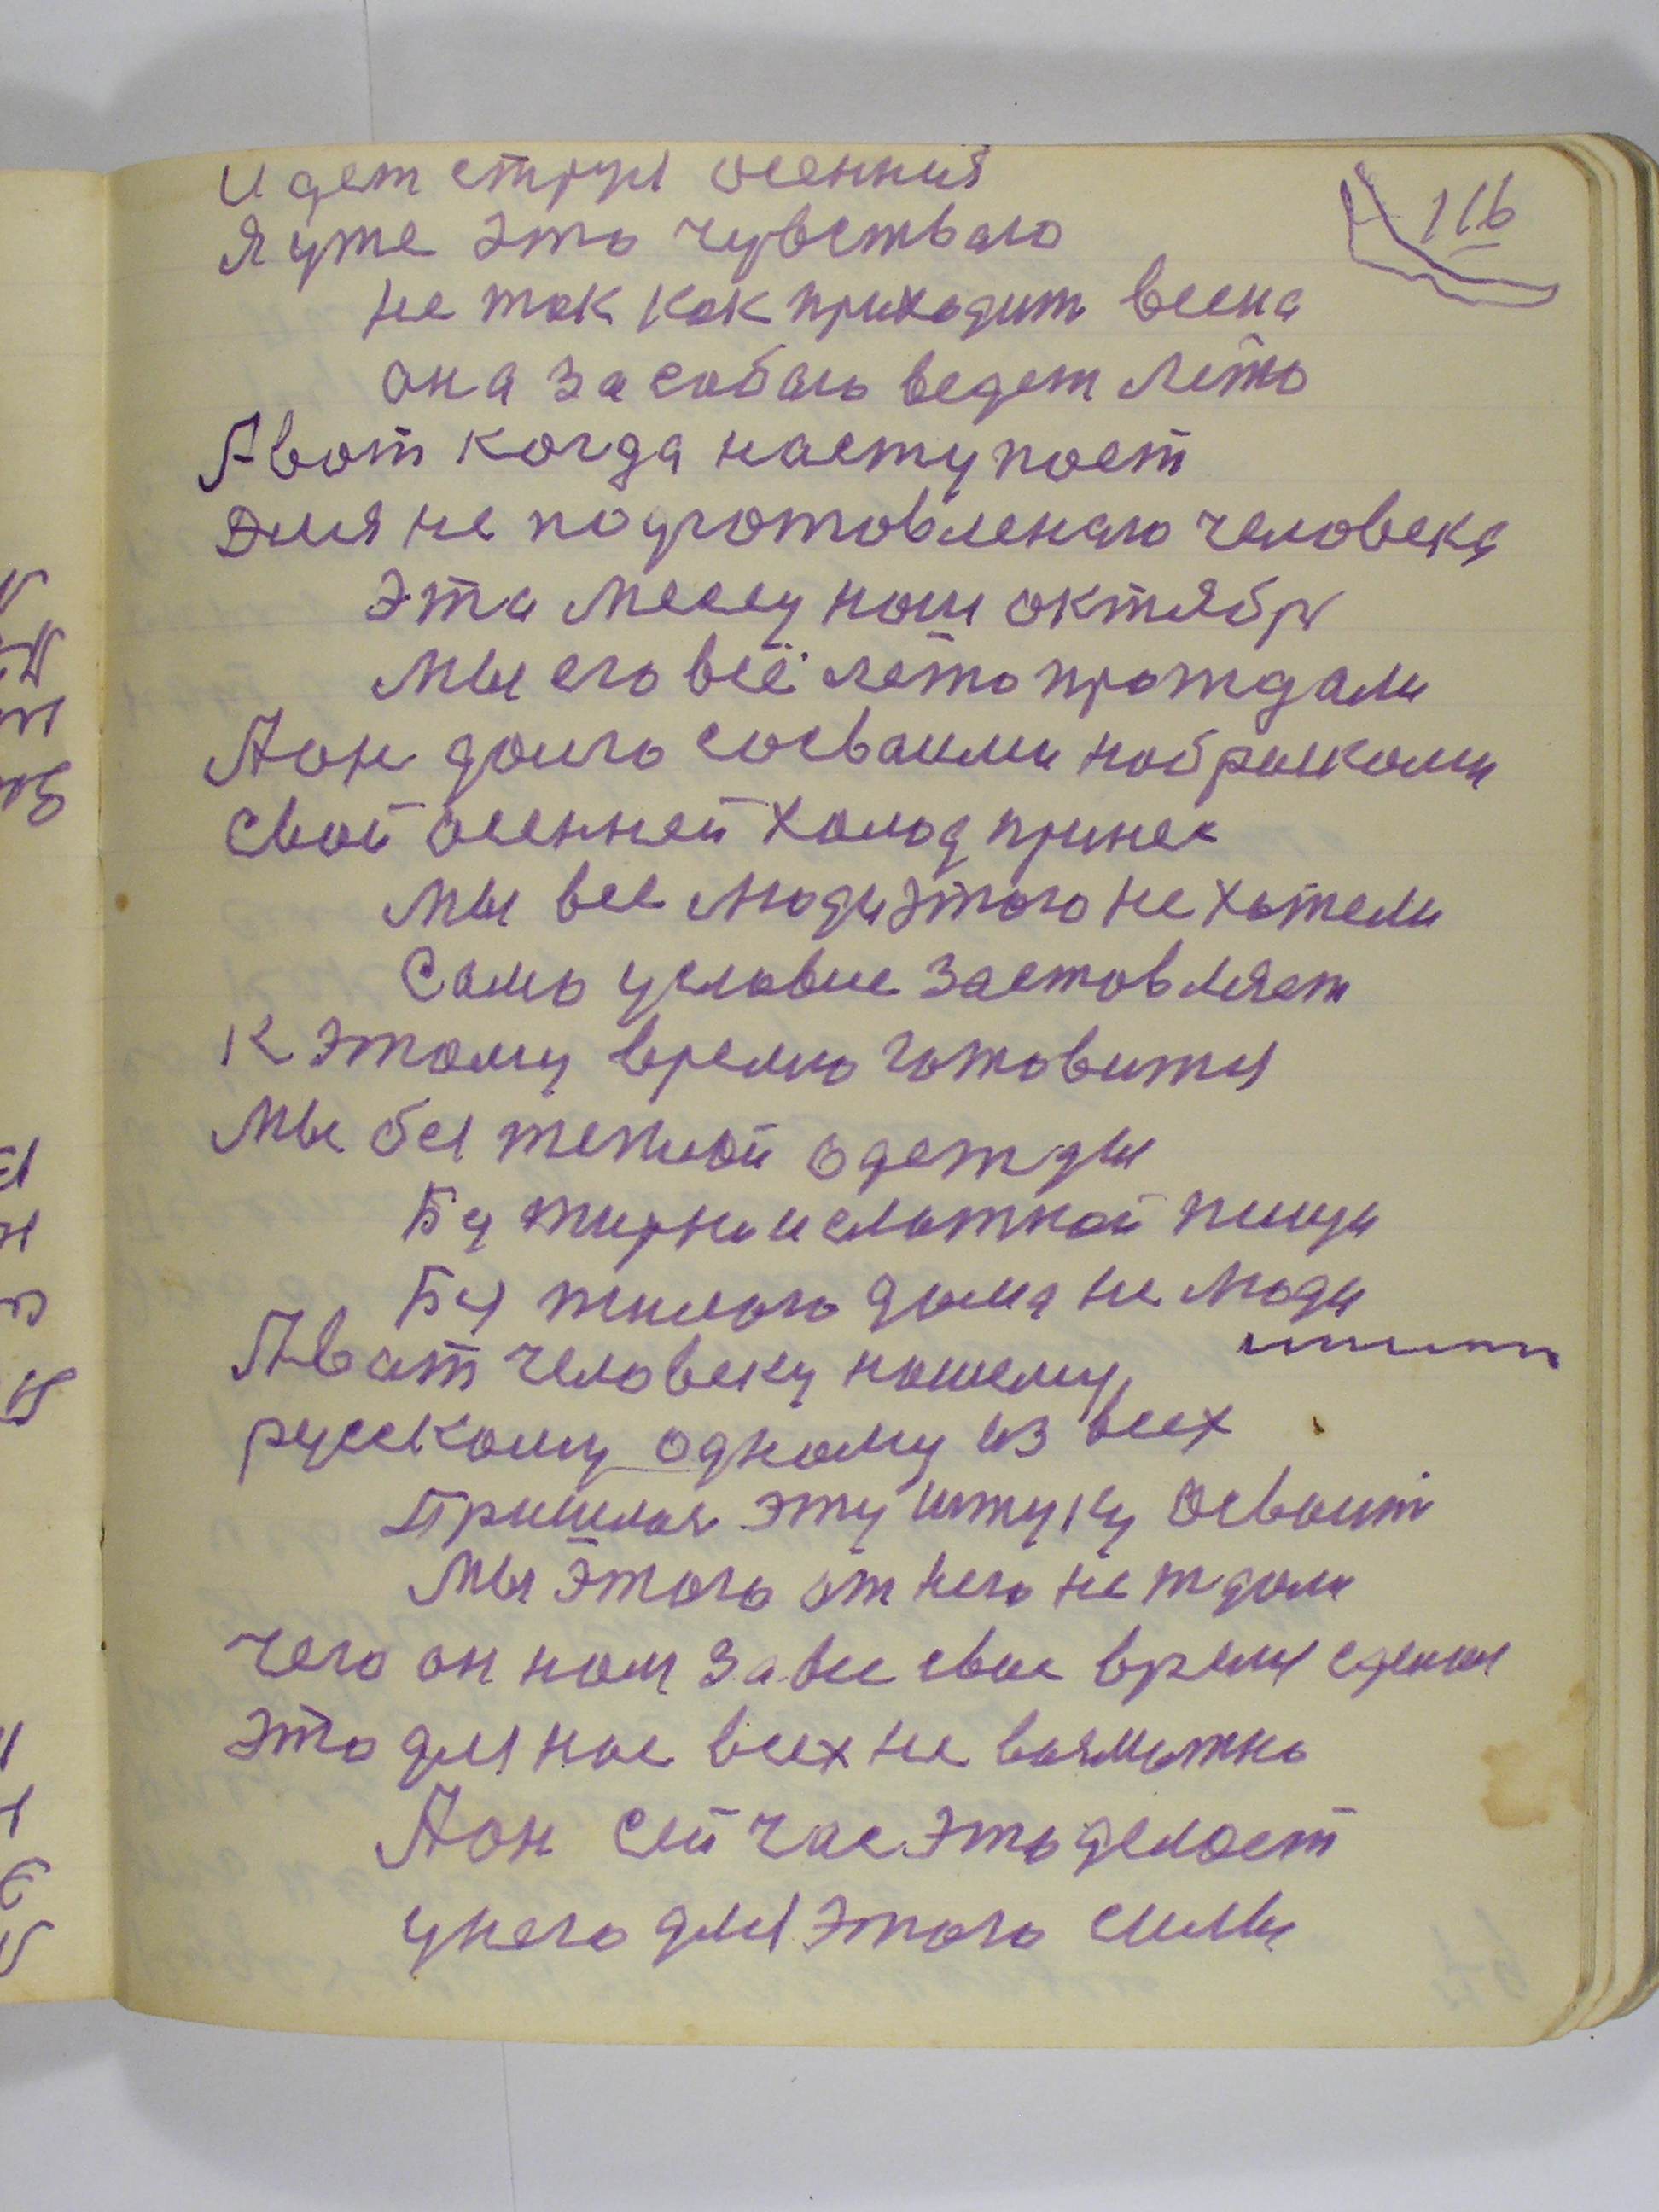 116
Идет струя осенния
Я уже это чувстваю
не так как приходит весна
она за сабаю ведет лето
Авот когда наступает
для не подготовленаю человека
Эта месец наш октябрь
Мы его всё лето прождали
Аон долго сосваими
свой осенней холод принес
мы все люди этого не хотели
Само условие заставляет
к этому время готовится
Мы без теплой одежды
Без жирно и слаткай пищи
Без жилого дома не люди
Ават человеку нашему,
русскому одному из всех
Пришлая эту штуку осваит
Мы этого от него не ждали
чего он нам за все свое время сделал
это для нас всех не возможно
Аон сейчас это делает
унего для этого силы